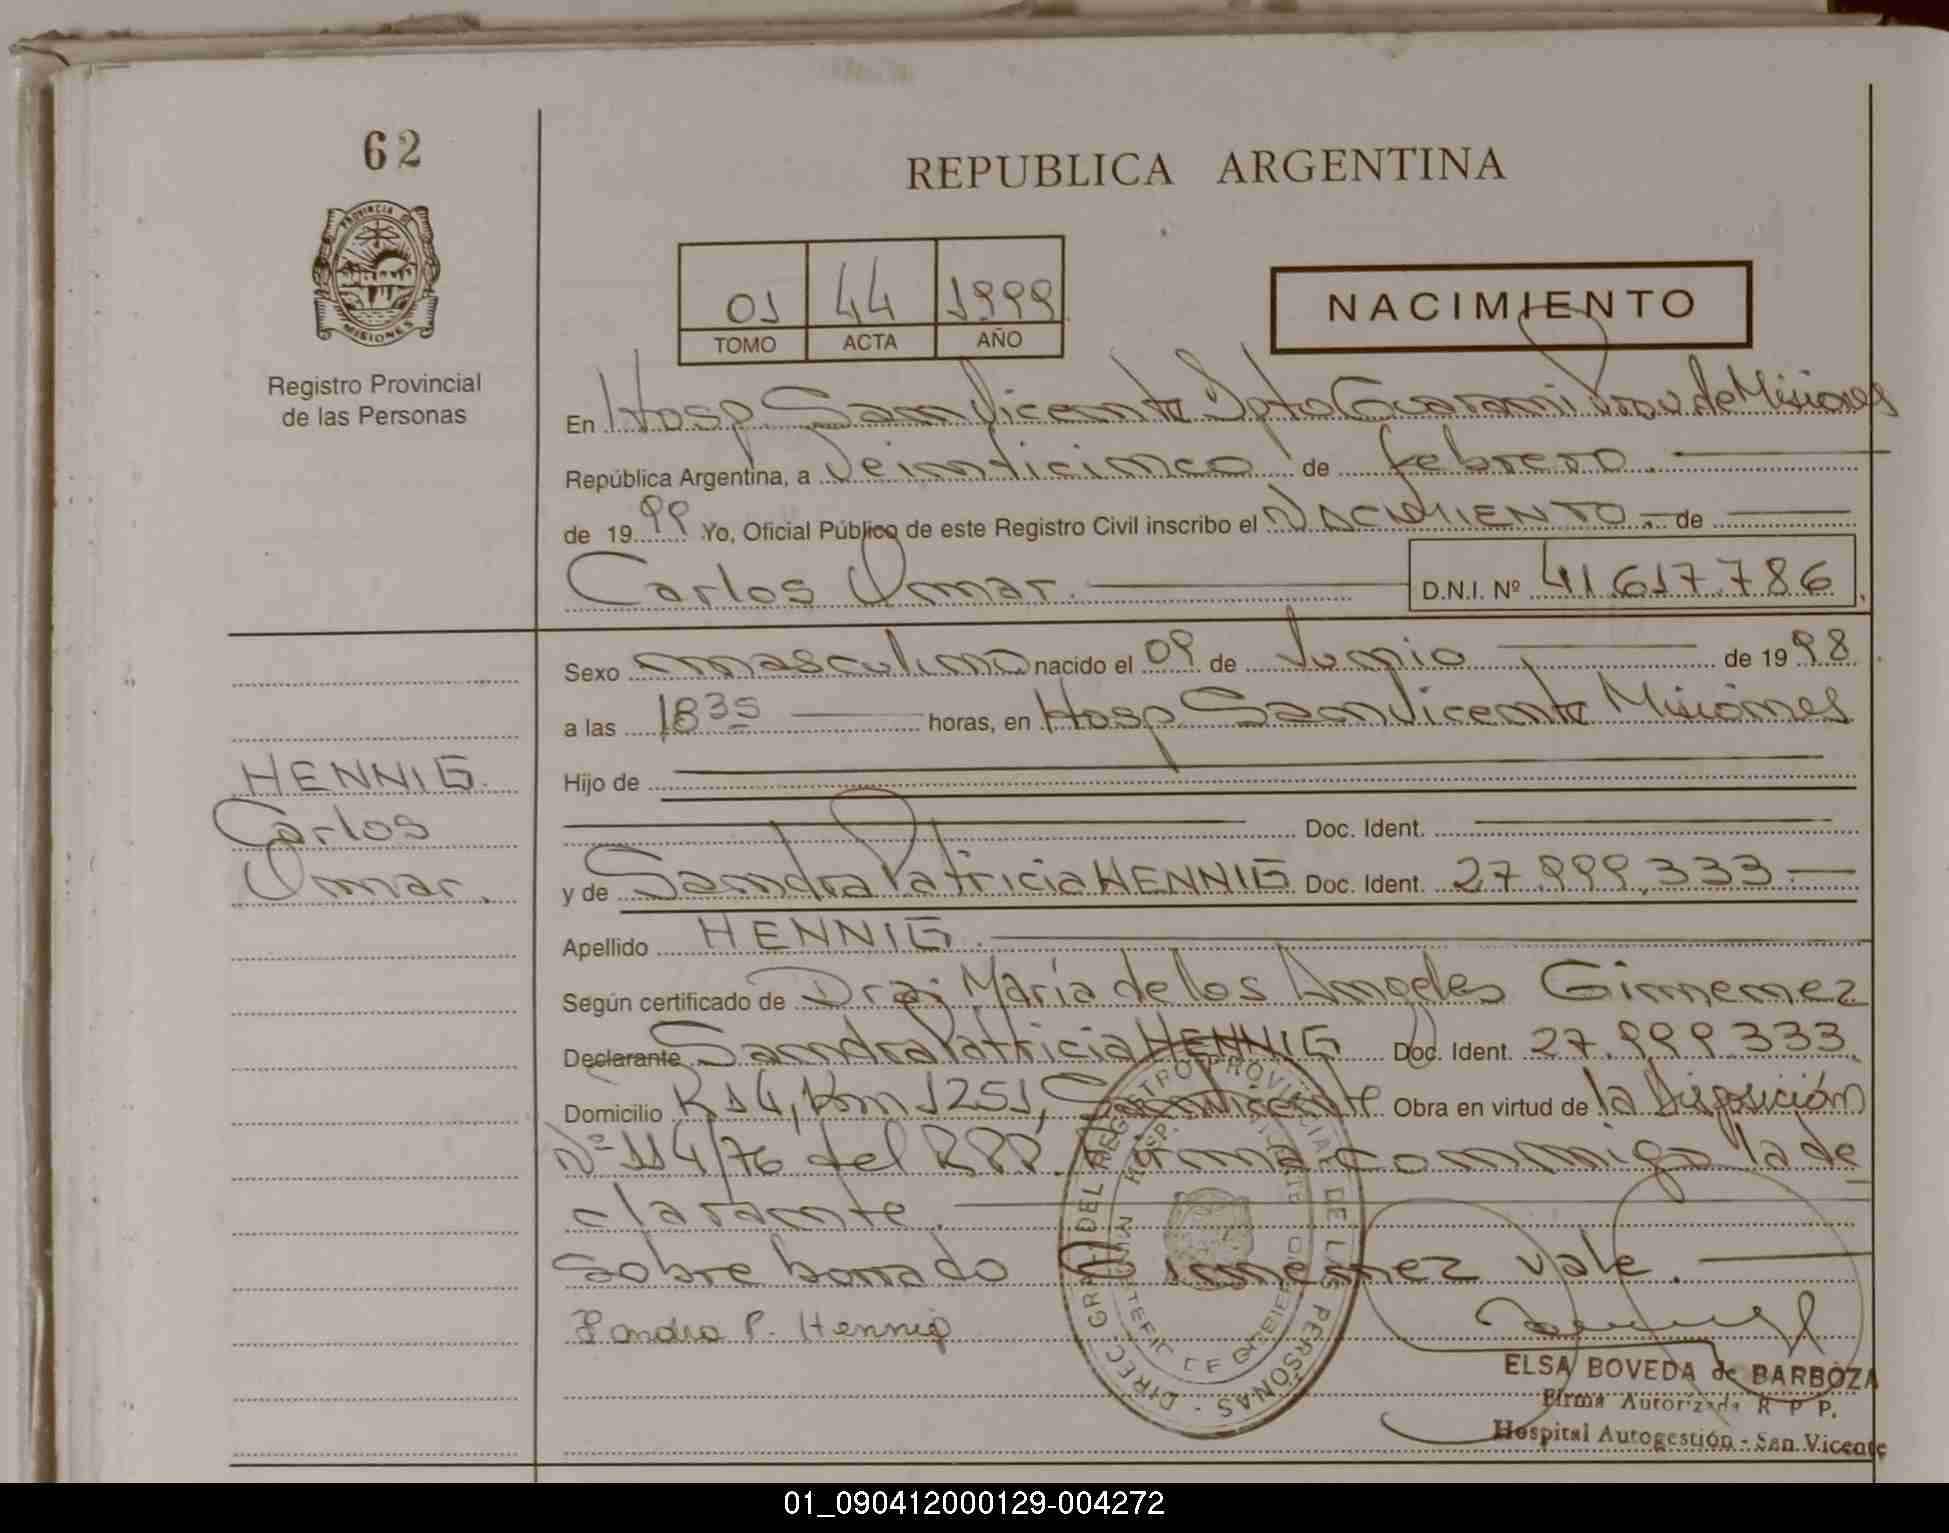 62
REPUBLICA ARGENTINA
PROVINCIA DE
MISIONES
Registro Provincial
de las Personas
01 44 1999
TOMO ACTA AÑO
NACIMIENTO
En Hosp San Vicente Dpto Guarani Prov de Misiones
República Argentina, a Veinticinco de febrero.
de 1999 Yo, Oficial Público de este Registro Civil inscribo el NACIMIENTO. de
Carlos Omar. D.N.I. Nº 41.617.786
Sexo masculino nacido el 09 de Junio de 1998
a las 18 35 horas, en Hosp San Vicente Misiones
Hijo de
Doc. Ident.
y de Sandra Patricia HENNIG Doc. Ident. 27.999.333
Apellido HENNIG.
Según certificado de Dra: María de los Angeles Gimenez
Declarante Sandra Patricia HENNIG Doc. Ident. 27.999.333.
Domicilio R14, Km 1251, San Vicente Obra en virtud de la Disposición
Nº 114/76 del RPP. Firma conmigo la de
clarante.
Sobre borrado Gimenez vale.
Sandra P. Hennig
HENNIG.
Carlos
Omar.
DIREC. GRAL DEL REGISTRO PROVINCIAL DE LAS PERSONAS
HOSP. SAN VICENTE
ELSA BOVEDA de BARBOZA
Firma Autorizada R P P.
Hospital Autogestión - San Vicente
01_090412000129-004272